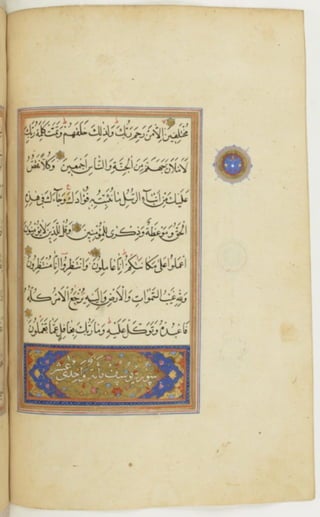 مُخْتَلِفِينَ اِلَّا مَنْ رَحِمَ رَبُّكَ وَلِذٰلِكَ خَلَقَهُمْ وَتَمَّتْ كَلِمَةُ رَبِّكَ
لَاَمْلَاَنَّ جَهَنَّمَ مِنَ الْجِنَّةِ وَالنَّاسِ اَجْمَعِينَ وَكُلًّا نَقُصُّ
عَلَيْكَ مِنْ اَنْبَآءِ الرُّسُلِ مَا نُثَبِّتُ بِهِ فُؤَادَكَ وَجَآءَكَ فِى هٰذِهِ
الْحَقُّ وَمَوْعِظَةٌ وَذِكْرٰى لِلْمُؤْمِنِينَ وَقُلْ لِلَّذِينَ لَا يُؤْمِنُونَ
اعْمَلُوا عَلٰى مَكَانَتِكُمْ اِنَّا عَامِلُونَ وَانْتَظِرُوا اِنَّا مُنْتَظِرُونَ
وَلِلّٰهِ غَيْبُ السَّمٰوَاتِ وَالْاَرْضِ وَاِلَيْهِ يُرْجَعُ الْاَمْرُ كُلُّهُ
فَاعْبُدْهُ وَتَوَكَّلْ عَلَيْهِ وَمَا رَبُّكَ بِغَافِلٍ عَمَّا تَعْمَلُونَ
سورة يوسف